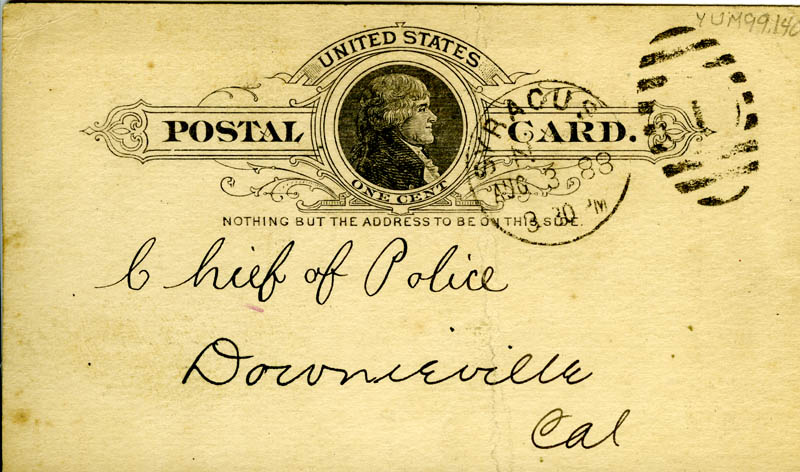 YUM99.146
UNITED STATES
POSTAL CARD.
ONE CENT
NOTHING BUT THE ADDRESS TO BE ON THIS SIDE.
SYRACUS
AUG 3 88
3 30 PM
1
Chief of Police
Downieville
Cal